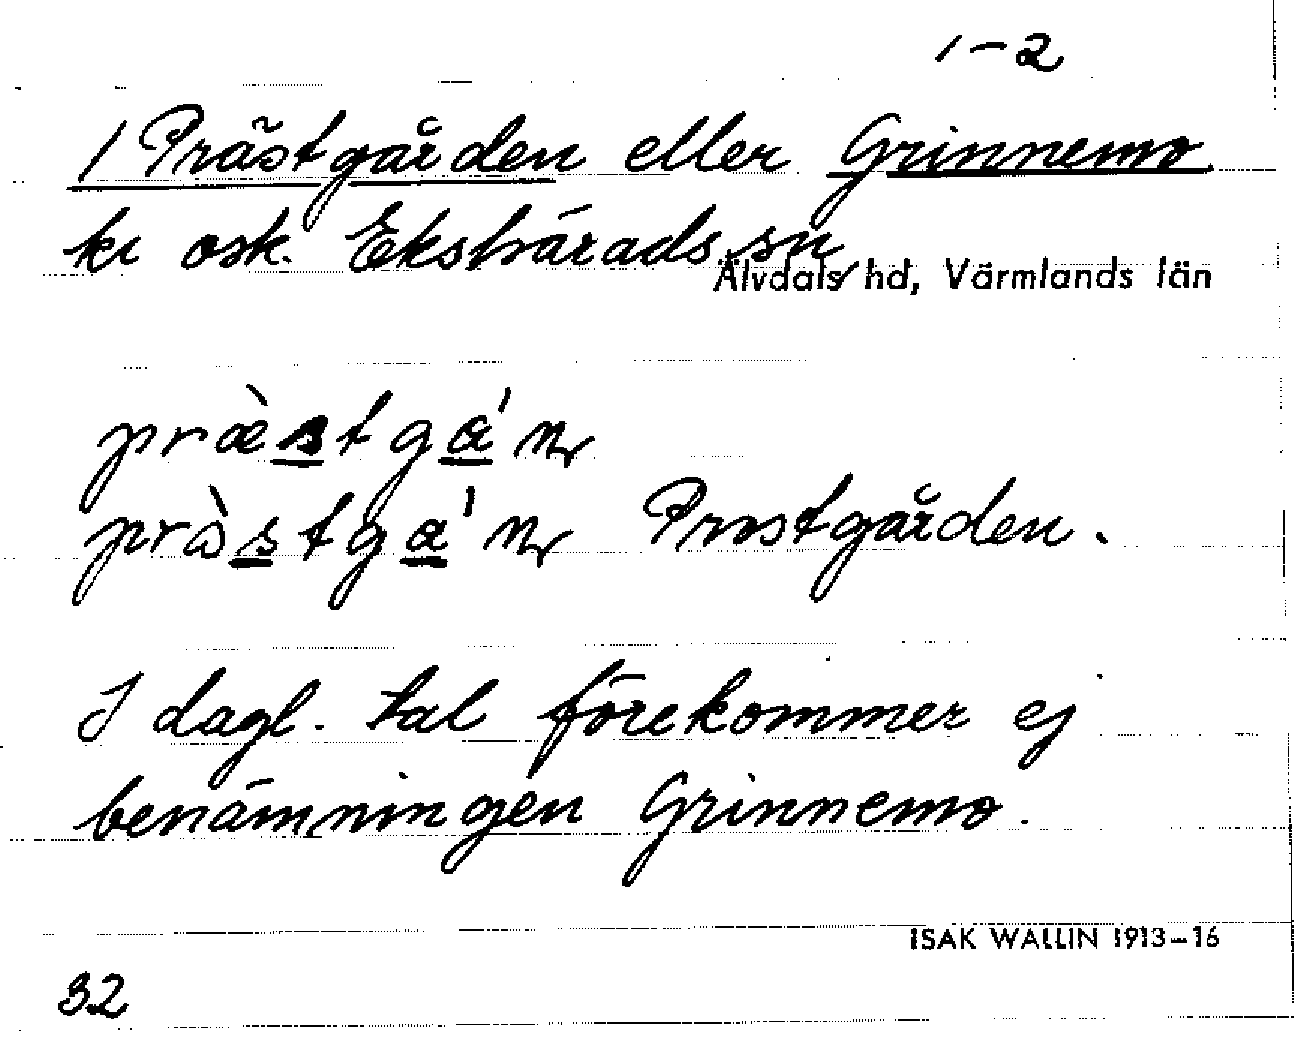 1-2
1 Prästgården eller Grinnemo
kr osk. Ekshärads sn
Älvdals hd, Värmlands län
præ̀stgα'n
pràstgα'n Prostgården.
I dagl. tal förekommer ej
benämningen Grinnemo.
ISAK WALLIN 1913-16
32